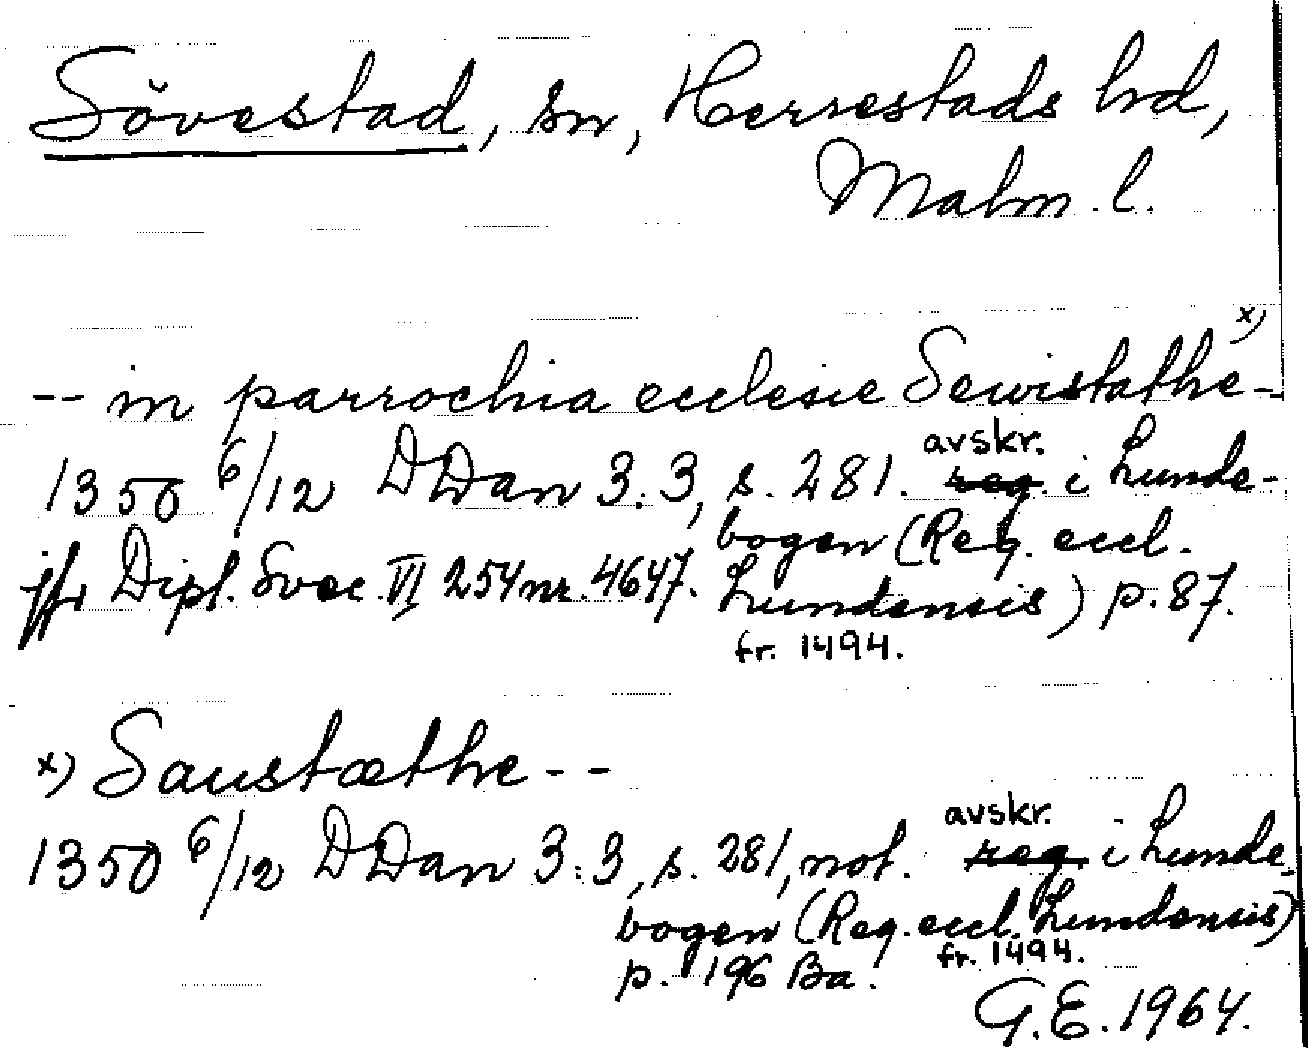 Sövestad, sn, Herrestads hd,
Malm. l.
-- in parrochia ecclesie Sewistathe x) -
1350 6/12 DDan 3.3, s. 281. avskr. reg. i Lunde-
bogen (Reg. eccl.
jfr Dipl. Svec. VI 254 nr. 4647. Lundensis) p. 87.
fr. 1494.
x) Saustæthe --
1350 6/12 DDan 3.3, s. 281, not. avskr. reg. i Lunde-
bogen (Reg. eccl. Lundensis)
p. 196 Ba. fr. 1494.
G.E. 1964.